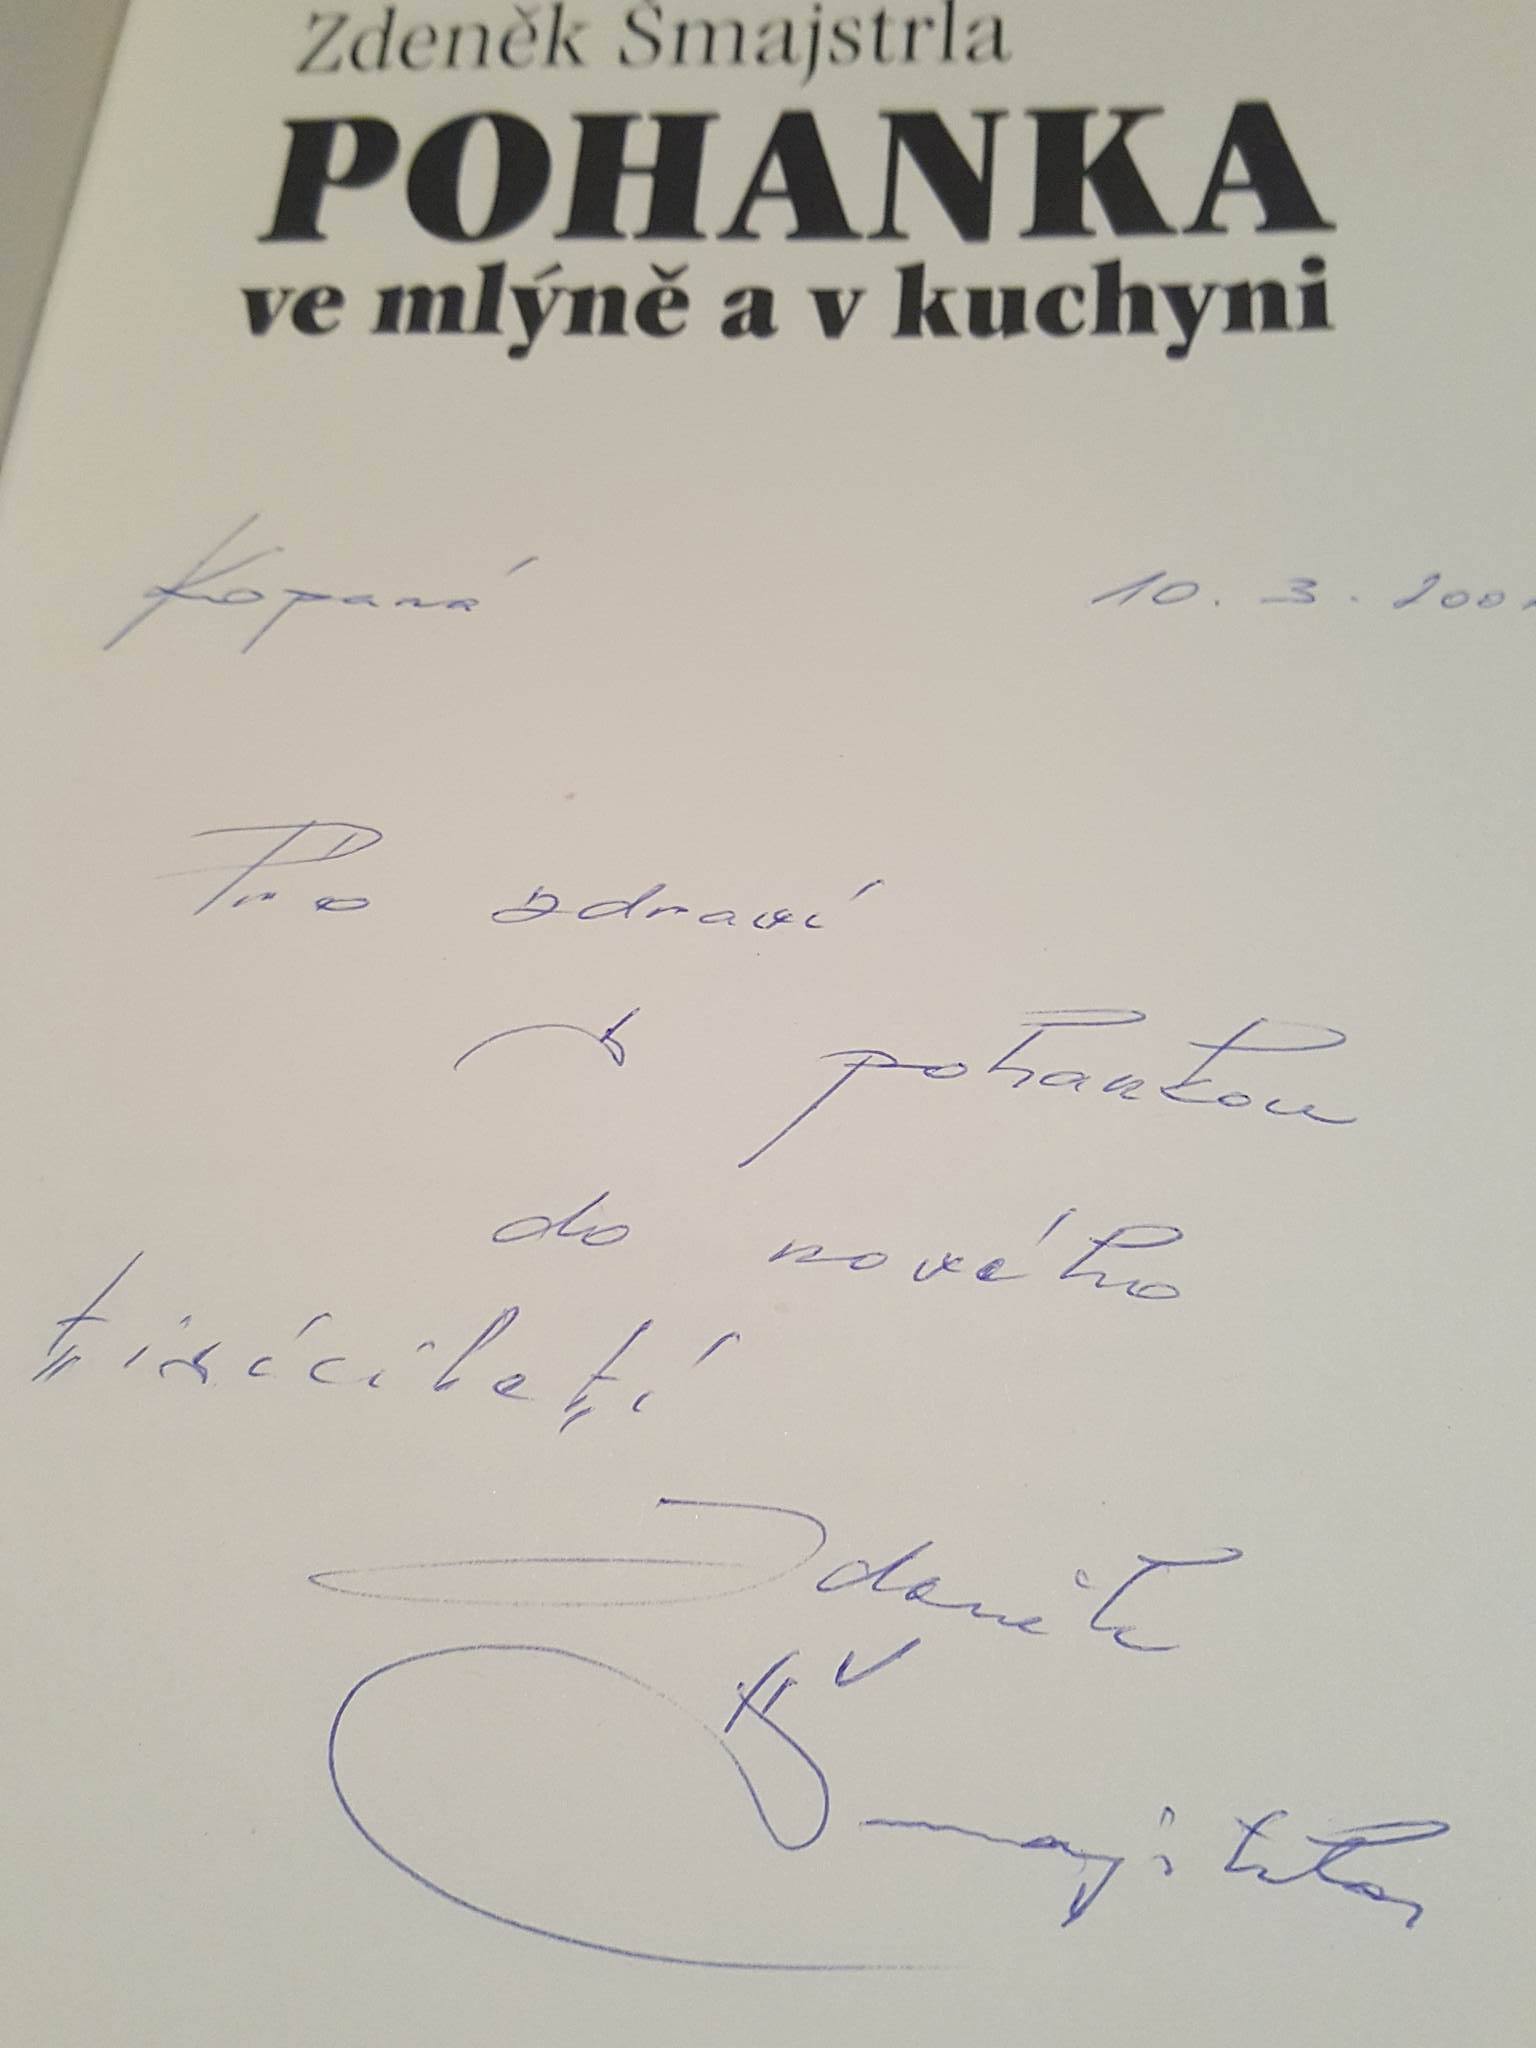 Zdeněk Šmajstrla
POHANKA
ve mlýně a v kuchyni
Kopaná 10. 3. 2001
Pro zdraví
s pohankou
do nového
tisíciletí
Zdeněk
Šmajstrla